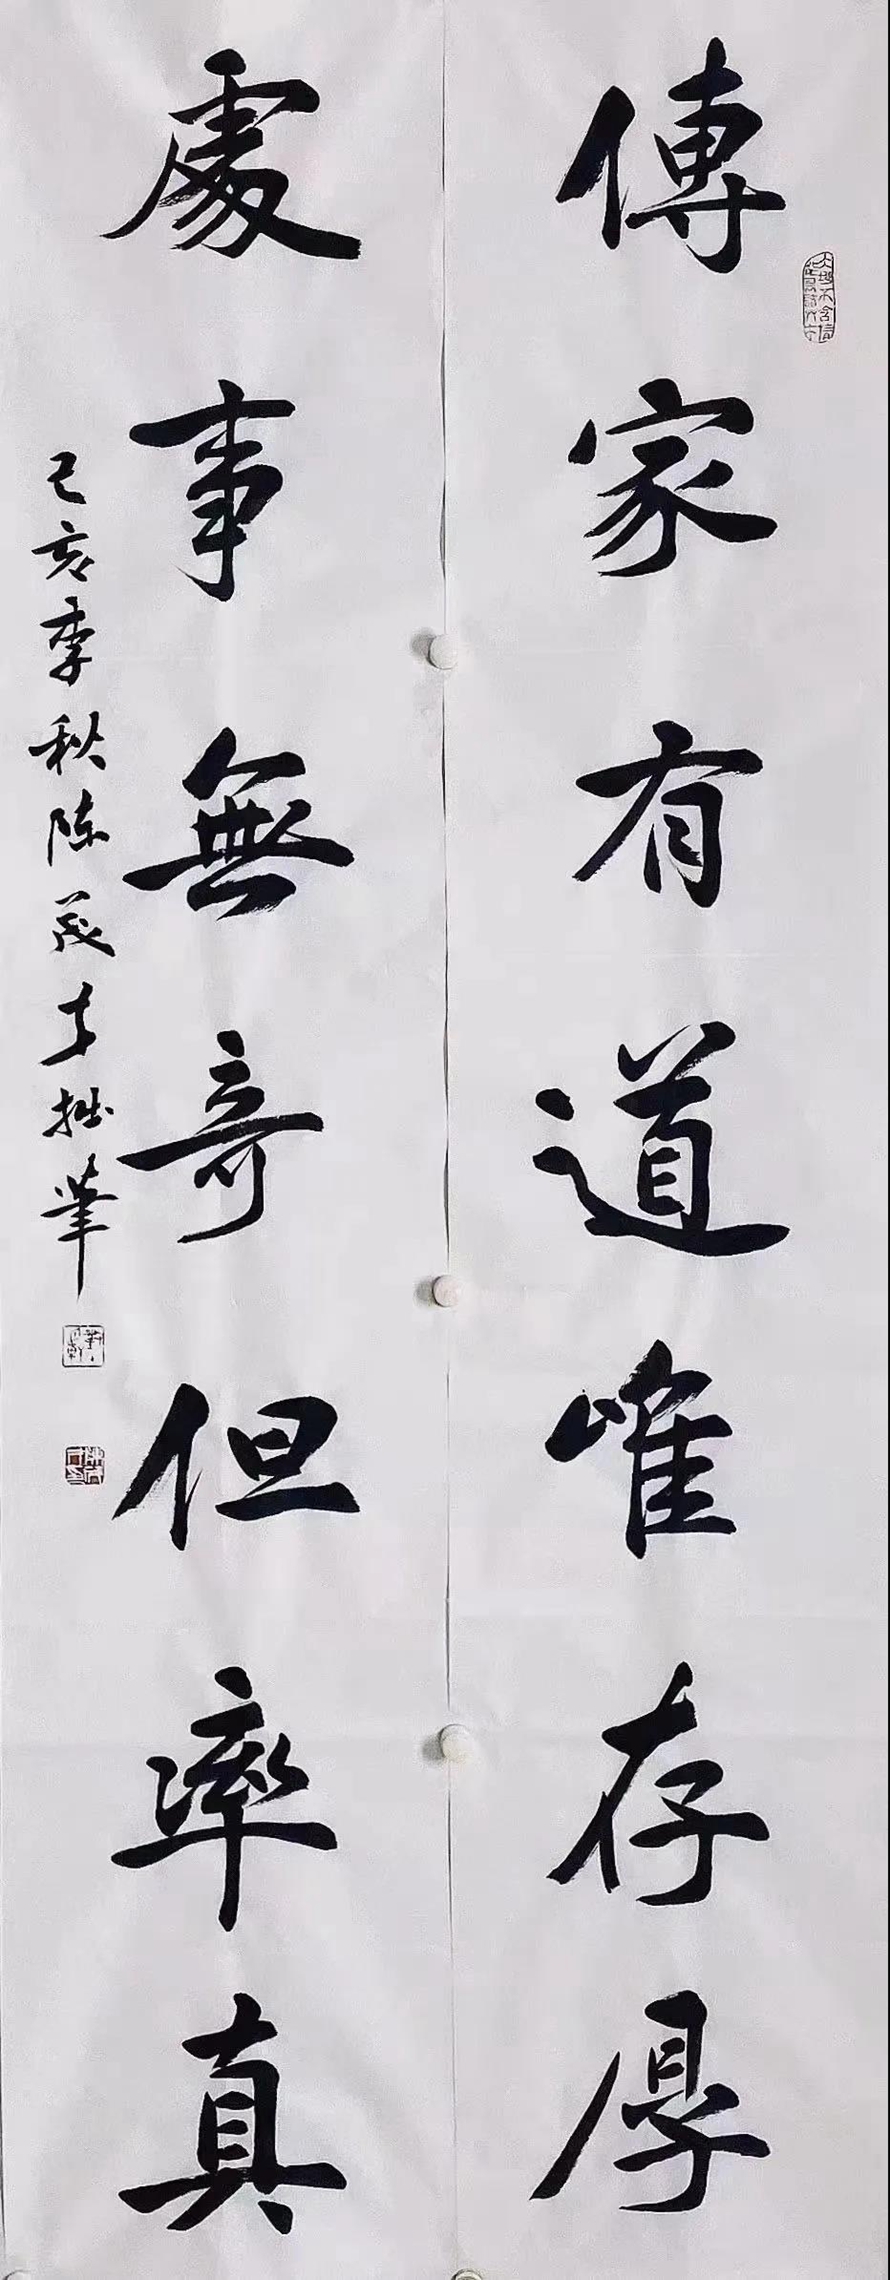 傳家有道唯存厚
處事無奇但率真
己亥季秋陈茂才拙筆